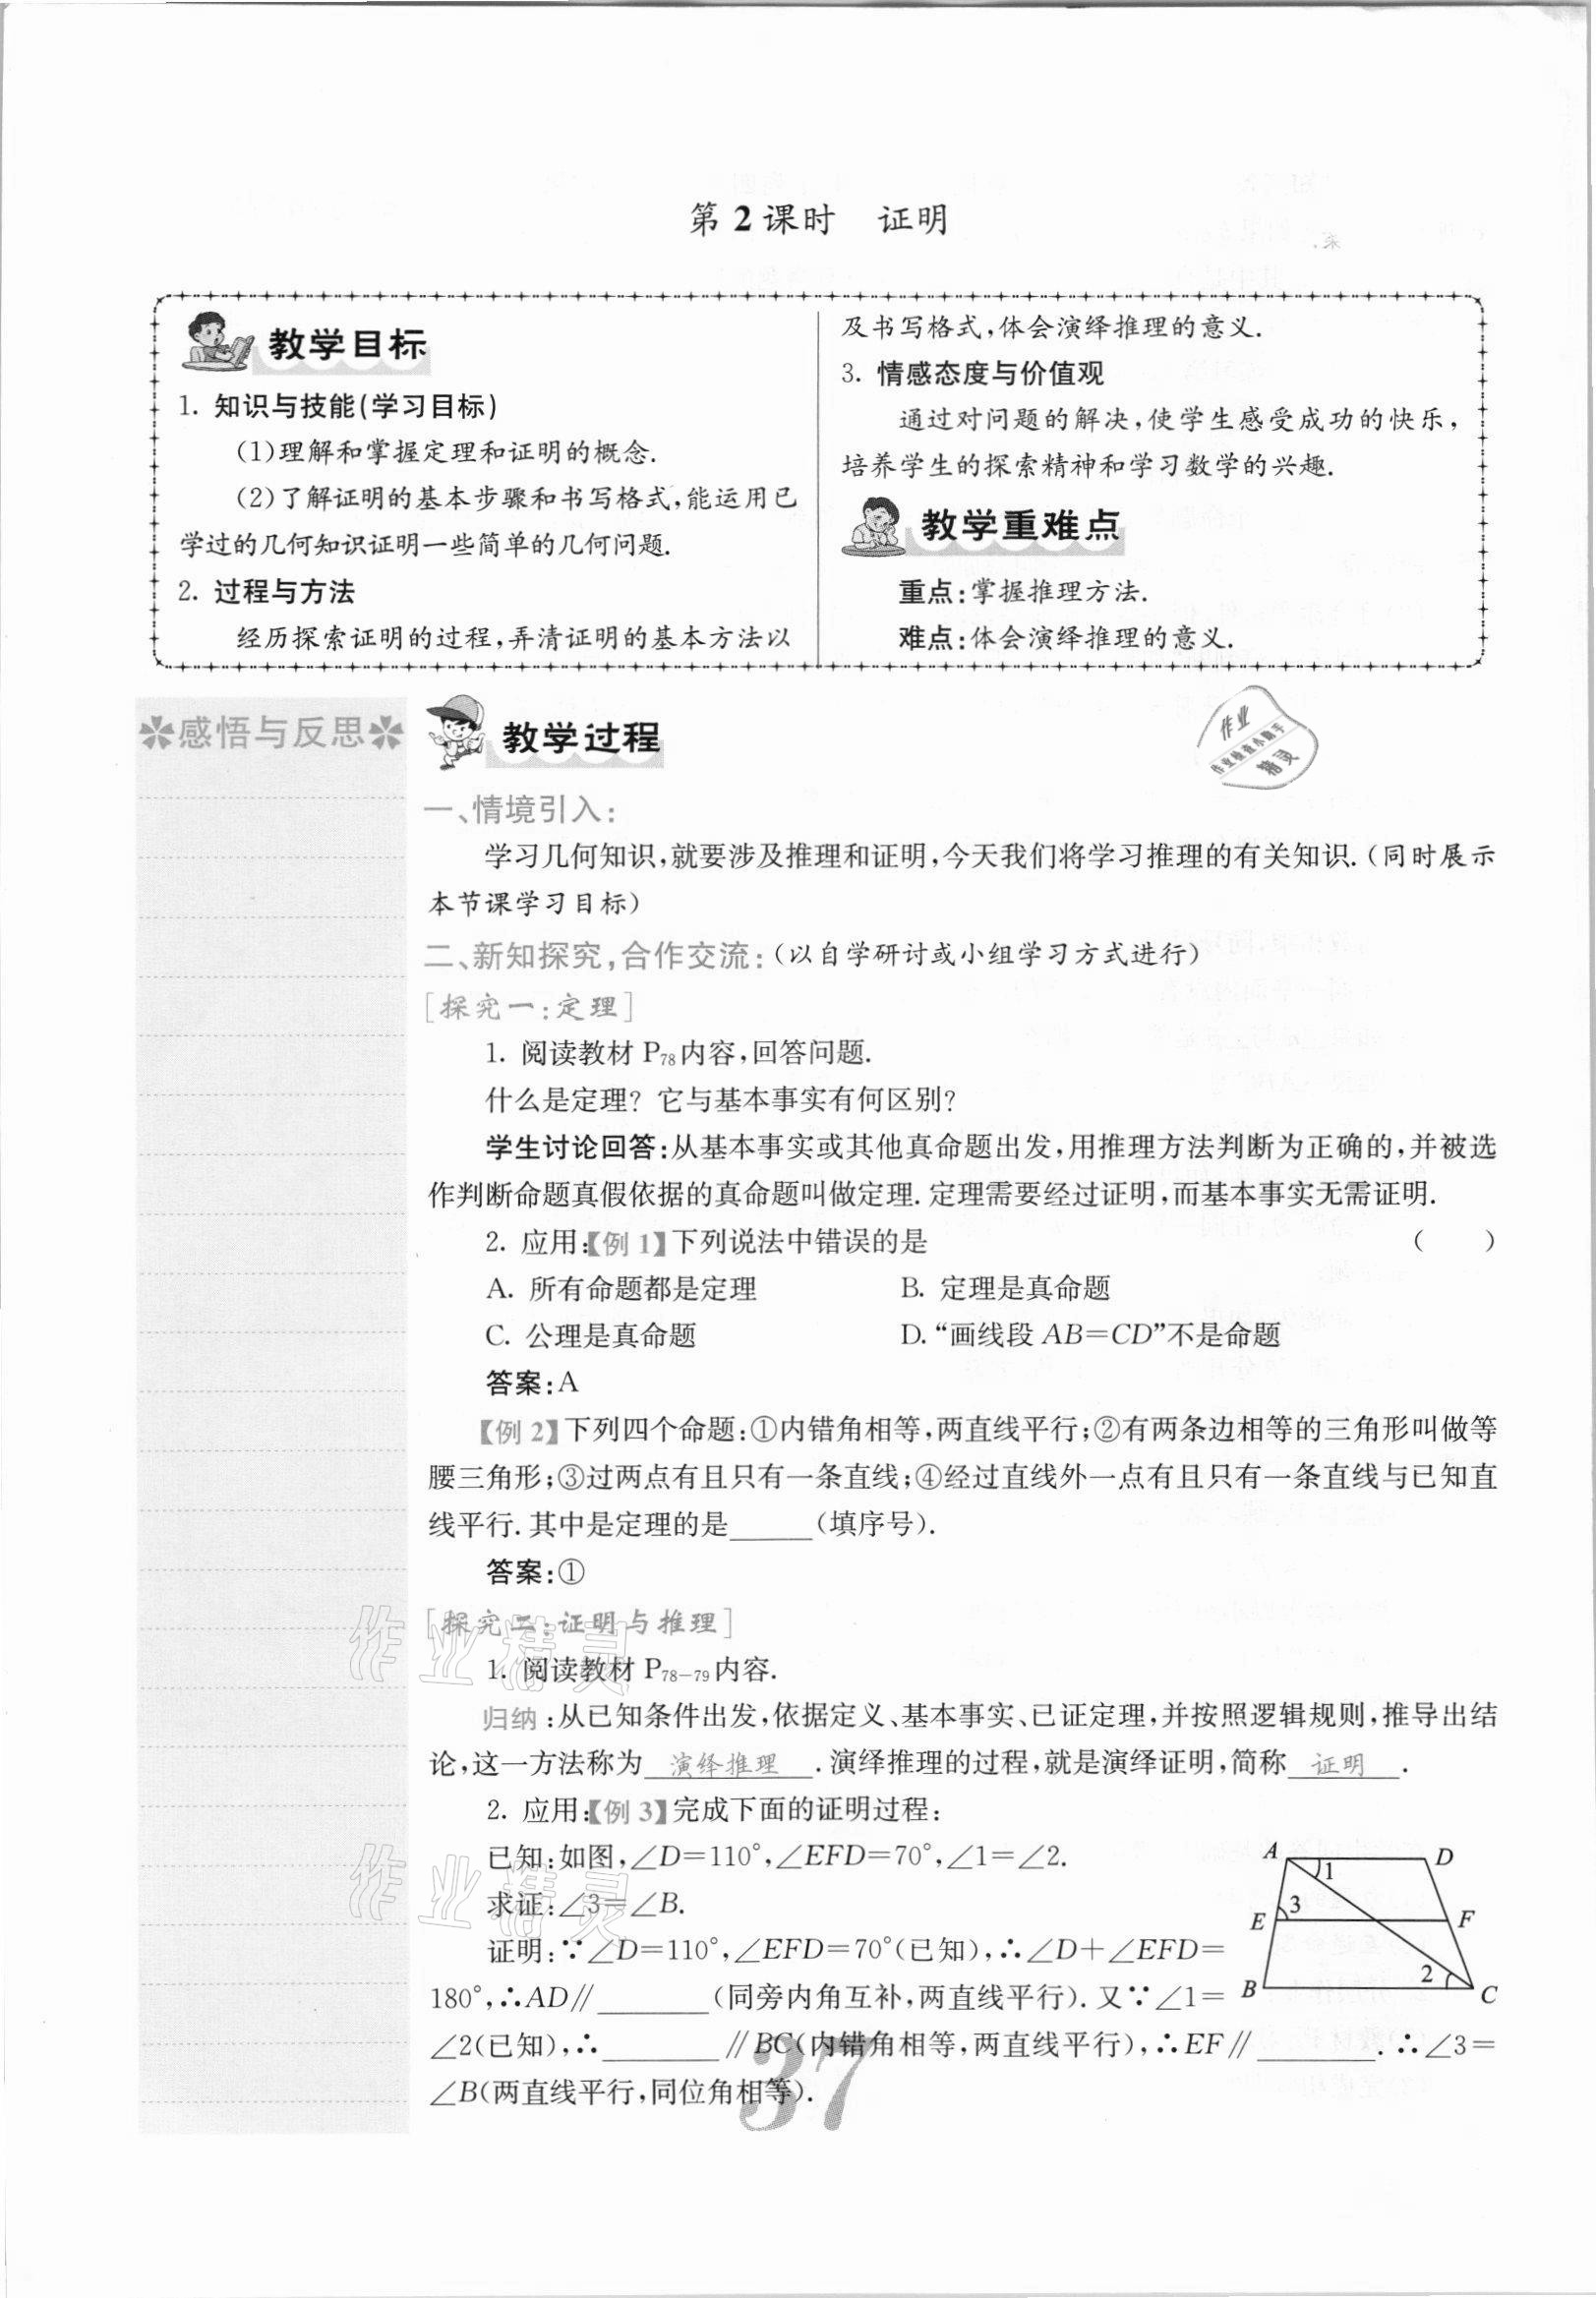 第2课时 证明
教学目标
1. 知识与技能(学习目标)
(1)理解和掌握定理和证明的概念.
(2)了解证明的基本步骤和书写格式,能运用已
学过的几何知识证明一些简单的几何问题.
2. 过程与方法
经历探索证明的过程,弄清证明的基本方法以
及书写格式,体会演绎推理的意义.
3. 情感态度与价值观
通过对问题的解决,使学生感受成功的快乐,
培养学生的探索精神和学习数学的兴趣.
教学重难点
重点:掌握推理方法.
难点:体会演绎推理的意义.
感悟与反思
教学过程
作业
作业检查小助手
精灵
一、情境引入:
学习几何知识,就要涉及推理和证明,今天我们将学习推理的有关知识.(同时展示
本节课学习目标)
二、新知探究,合作交流:(以自学研讨或小组学习方式进行)
[探究一:定理]
1. 阅读教材 P78内容,回答问题.
什么是定理?它与基本事实有何区别?
学生讨论回答:从基本事实或其他真命题出发,用推理方法判断为正确的,并被选
作判断命题真假依据的真命题叫做定理.定理需要经过证明,而基本事实无需证明.
2. 应用:【例1】下列说法中错误的是 ( )
A. 所有命题都是定理 B. 定理是真命题
C. 公理是真命题 D.“画线段 AB=CD”不是命题
答案:A
【例2】下列四个命题:①内错角相等,两直线平行;②有两条边相等的三角形叫做等
腰三角形;③过两点有且只有一条直线;④经过直线外一点有且只有一条直线与已知直
线平行.其中是定理的是______(填序号).
答案:①
[探究二:证明与推理]
1. 阅读教材 P78-79内容.
归纳:从已知条件出发,依据定义、基本事实、已证定理,并按照逻辑规则,推导出结
论,这一方法称为 演绎推理 .演绎推理的过程,就是演绎证明,简称 证明 .
2. 应用:【例3】完成下面的证明过程:
已知:如图,∠D=110°,∠EFD=70°,∠1=∠2.
求证:∠3=∠B.
证明:∵∠D=110°,∠EFD=70°(已知),∴∠D+∠EFD=
180°,∴AD∥________(同旁内角互补,两直线平行).又∵∠1=
∠2(已知),∴________∥BC(内错角相等,两直线平行),∴EF∥________.∴∠3=
∠B(两直线平行,同位角相等).
A D
1
E 3 F
B 2 C
作业精灵
作业精灵
37